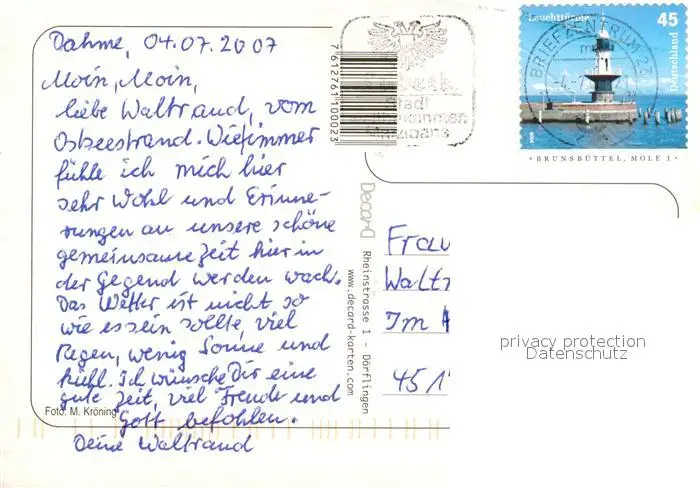 Dahme, 04.07.2007
Moin, Moin,
liebe Waltraud, vom
Ostseestrand. Wie immer
fühle ich mich hier
sehr wohl und Erinne-
rungen an unsere schöne
gemeinsame Zeit hier in
der Gegend werden wach.
Das Wetter ist nicht so
wie es sein sollte, viel
Regen, wenig Sonne und
kühl. Ich wünsche Dir eine
gute Zeit, viel Freude und
Gott befohlen.
Deine Waltraud
Foto: M. Kröning
7612761100023
Decard
Rheinstrasse 1 - Dörflingen
www.decard-karten.com
Stadt
Marzipans
Leuchttürme
45
Deutschland
BRIEFZENTRUM 2
BRUNSBÜTTEL, MOLE 1
Frau
Walt
Im
451
privacy protection
Datenschutz